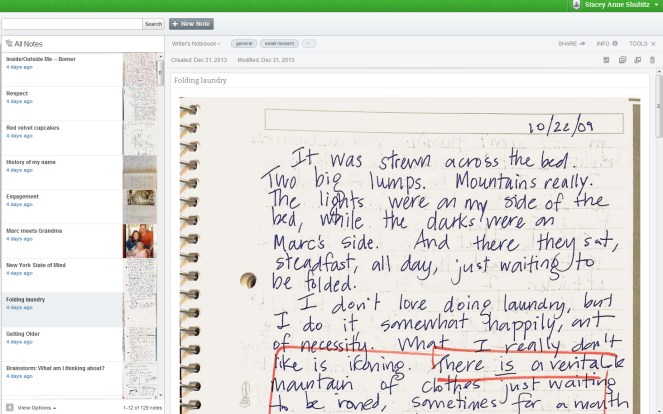 Stacey Anne Shubitz
Search
+ New Note
All Notes
Inside/Outside Me – Bomer
4 days ago
Respect
4 days ago
Red velvet cupcakes
4 days ago
History of my name
4 days ago
Engagement
4 days ago
Marc meets Grandma
4 days ago
New York State of Mind
4 days ago
Folding laundry
4 days ago
Getting Older
4 days ago
Brainstorm: What am I thinking about?
4 days ago
View Options
1-12 of 129 notes
Writer's Notebook
general
small moment
SHARE
INFO
TOOLS
Created: Dec 31, 2013
Modified: Dec 31, 2013
Folding laundry
10/22/09
It was strewn across the bed.
Two big lumps. Mountains really.
The lights were on my side of the
bed, while the darks were on
Marc's side. And there they sat,
steadfast, all day, just waiting to
be folded.
I don't love doing laundry, but
I do it somewhat happily, out
of necessity. What I really don't
like is ironing. There is a veritable
mountain of clothes just waiting
to be ironed, sometimes for a month